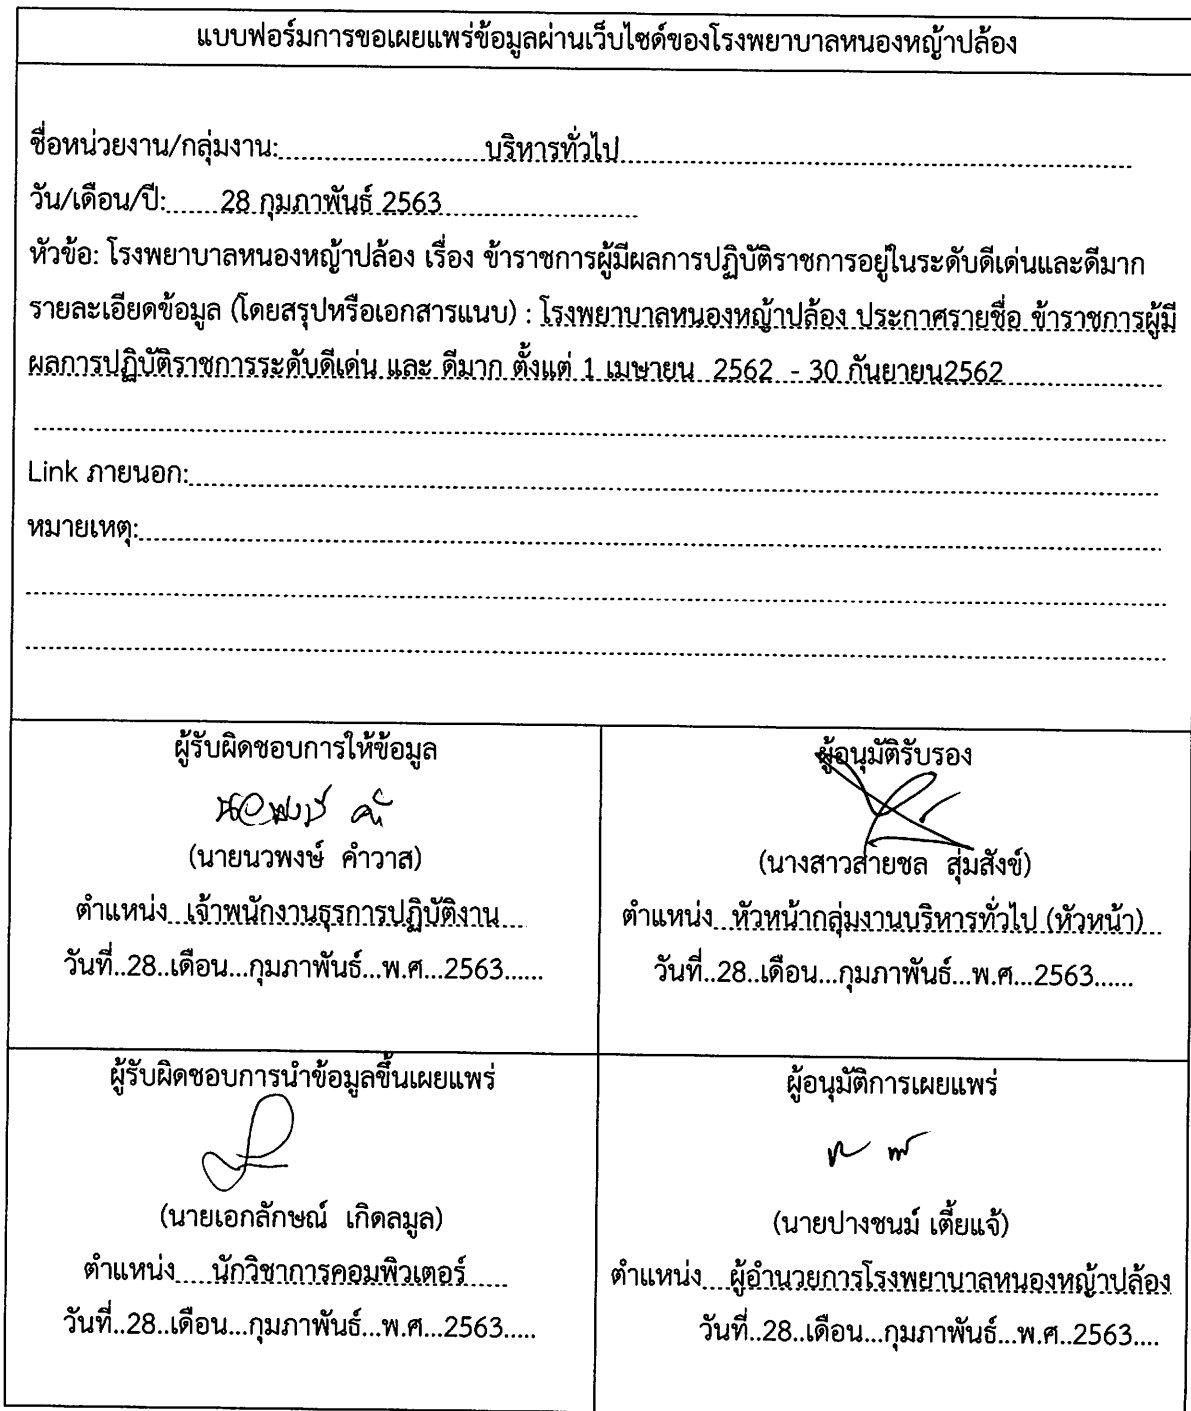 แบบฟอร์มการขอเผยแพร่ข้อมูลผ่านเว็บไซด์ของโรงพยาบาลหนองหญ้าปล้อง
ชื่อหน่วยงาน/กลุ่มงาน:..........................บริหารทั่วไป..........................
วัน/เดือน/ปี:.......28 กุมภาพันธ์ 2563..........................
หัวข้อ: โรงพยาบาลหนองหญ้าปล้อง เรื่อง ข้าราชการผู้มีผลการปฏิบัติราชการอยู่ในระดับดีเด่นและดีมาก
รายละเอียดข้อมูล (โดยสรุปหรือเอกสารแนบ) : โรงพยาบาลหนองหญ้าปล้อง ประกาศรายชื่อ ข้าราชการผู้มี
ผลการปฏิบัติราชการระดับดีเด่น และ ดีมาก ตั้งแต่ 1 เมษายน 2562 - 30 กันยายน2562
Link ภายนอก:
หมายเหตุ:
ผู้รับผิดชอบการให้ข้อมูล
(นายนวพงษ์ คำวาส)
ตำแหน่ง...เจ้าพนักงานธุรการปฏิบัติงาน....
วันที่..28..เดือน...กุมภาพันธ์...พ.ศ...2563......
ผู้อนุมัติรับรอง
(นางสาวสายชล สุ่มสังข์)
ตำแหน่ง...หัวหน้ากลุ่มงานบริหารทั่วไป (หัวหน้า)...
วันที่..28..เดือน...กุมภาพันธ์...พ.ศ...2563......
ผู้รับผิดชอบการนำข้อมูลขึ้นเผยแพร่
(นายเอกลักษณ์ เกิดลมูล)
ตำแหน่ง.....นักวิชาการคอมพิวเตอร์.....
วันที่..28..เดือน...กุมภาพันธ์...พ.ศ...2563.....
ผู้อนุมัติการเผยแพร่
(นายปางชนม์ เตี้ยแจ้)
ตำแหน่ง....ผู้อำนวยการโรงพยาบาลหนองหญ้าปล้อง
วันที่..28..เดือน...กุมภาพันธ์...พ.ศ..2563....